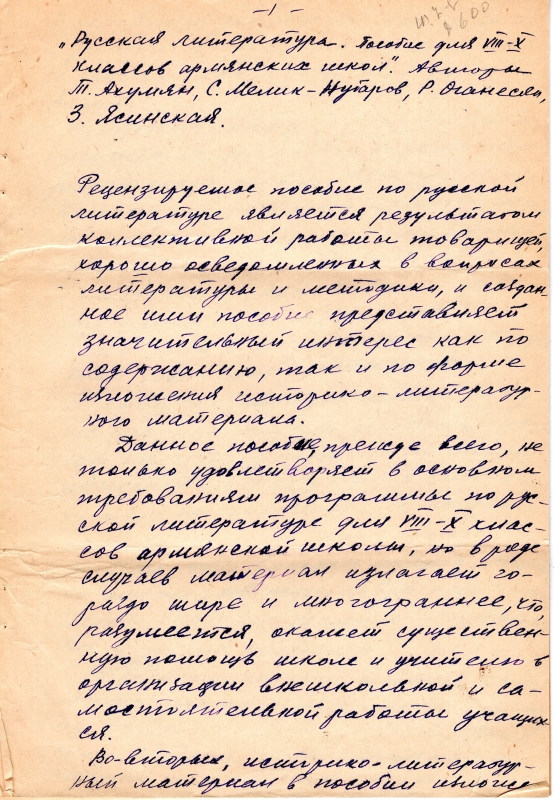 -1-
„Русская литература. Пособие для VIII-X
классов армянских школ". Авторы
Т. Ахумян, С. Мелик-Нубаров, Р. Оганесян,
З. Ясинская.
Рецензируемое пособие по русской
литературе является результатом
коллективной работы товарищей,
хорошо осведомленных в вопросах
литературы и методики, и создан-
ное ими пособие представляет
значительный интерес как по
содержанию, так и по форме
изложения историко-литератур-
ного материала.
Данное пособие, прежде всего, не
только удовлетворяет в основном
требованиям программы по рус-
ской литературе для VIII-X клас-
сов армянской школы, но в ряде
случаев материал излагает го-
раздо шире и многограннее, что,
разумеется, окажет существен-
ную помощь школе и учителю в
организации внешкольной и са-
мостоятельной работы учащих-
ся.
Во-вторых, историко-литератур-
ный материал в пособии изложен